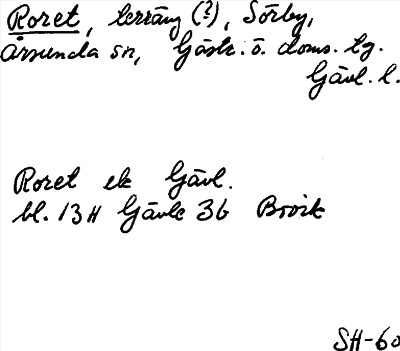 Roret, terräng (?), Sörby,
Årsunda sn, Gästr. ö. doms. tg.
Gävl. l.
Roret ek Gävl.
bl. 13H Gävle 3b
SH-60